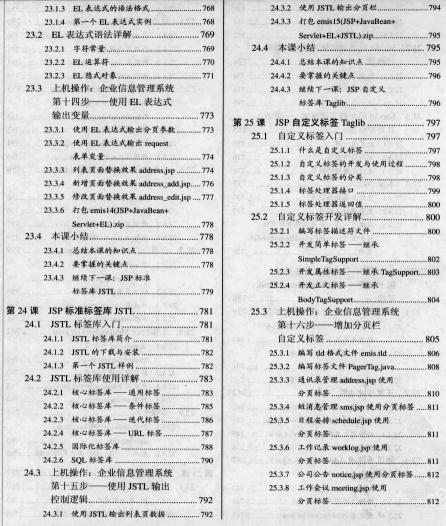 23.1.3 EL 表达式的语法格式 ........ 768
23.1.4 第一个 EL 表达式实例 ........ 768
23.2 EL 表达式语法详解 ........ 769
23.2.1 字符常量 ........ 769
23.2.2 EL 运算符 ........ 770
23.2.3 EL 隐式对象 ........ 771
23.3 上机操作：企业信息管理系统
第十四步——使用 EL 表达式
输出变量 ........ 773
23.3.1 使用 EL 表达式输出分页参数 ........ 773
23.3.2 使用 EL 表达式输出 request
表单变量 ........ 774
23.3.3 列表页面替换效果 address.jsp ........ 774
23.3.4 新增页面替换效果 address_add.jsp ... 776
23.3.5 修改页面替换效果 address_edit.jsp .... 777
23.3.6 打包 emis14(JSP+JavaBean+
Servlet+EL).zip ........ 778
23.4 本课小结 ........ 778
23.4.1 总结本课的知识点 ........ 778
23.4.2 要掌握的关键点 ........ 778
23.4.3 继续下一课：JSP 标准
标签库 JSTL ........ 779
第 24 课 JSP 标准标签库 JSTL ........ 781
24.1 JSTL 标签库入门 ........ 781
24.1.1 JSTL 标签库简介 ........ 781
24.1.2 JSTL 的下载与安装 ........ 782
24.1.3 第一个 JSTL 样例 ........ 782
24.2 JSTL 标签库使用详解 ........ 783
24.2.1 核心标签库——通用标签 ........ 783
24.2.2 核心标签库——条件标签 ........ 785
24.2.3 核心标签库——迭代标签 ........ 786
24.2.4 核心标签库——URL 标签 ........ 787
24.2.5 国际化标签库 ........ 788
24.2.6 SQL 标签库 ........ 790
24.3 上机操作：企业信息管理系统
第十五步——使用 JSTL 输出
控制逻辑 ........ 792
24.3.1 使用 JSTL 输出列表页数据 ........ 792
24.3.2 使用 JSTL 输出分页栏 ........ 794
24.3.3 打包 emis15(JSP+JavaBean+
Servlet+EL+JSTL).zip ........ 795
24.4 本课小结 ........ 795
24.4.1 总结本课的知识点 ........ 795
24.4.2 要掌握的关键点 ........ 796
24.4.3 继续下一课：JSP 自定义
标签库 Taglib ........ 796
第 25 课 JSP 自定义标签 Taglib ........ 797
25.1 自定义标签入门 ........ 797
25.1.1 什么是自定义标签 ........ 797
25.1.2 自定义标签的开发与使用过程 ........ 798
25.1.3 自定义标签的分类 ........ 798
25.1.4 标签处理器接口 ........ 799
25.1.5 标签处理器返回值 ........ 800
25.2 自定义标签开发详解 ........ 800
25.2.1 编写标签描述符文件 ........ 800
25.2.2 开发简单标签——继承
SimpleTagSupport ........ 802
25.2.3 开发属性标签——继承 TagSupport .... 803
25.2.4 开发正文标签——继承
BodyTagSupport ........ 804
25.3 上机操作：企业信息管理系统
第十六步——增加分页栏
自定义标签 ........ 805
25.3.1 编写 tld 格式文件 emis.tld ........ 806
25.3.2 编写标签文件 PagerTag.java ........ 808
25.3.3 通讯录管理 address.jsp 使用
分页标签 ........ 810
25.3.4 短消息管理 sms.jsp 使用分页标签 ... 811
25.3.5 日程安排 schedule.jsp 使用
分页标签 ........ 811
25.3.6 工作记录 worklog.jsp 使用
分页标签 ........ 811
25.3.7 公司公告 notice.jsp 使用分页标签 .... 812
25.3.8 工作会议 meeting.jsp 使用
分页标签 ........ 812